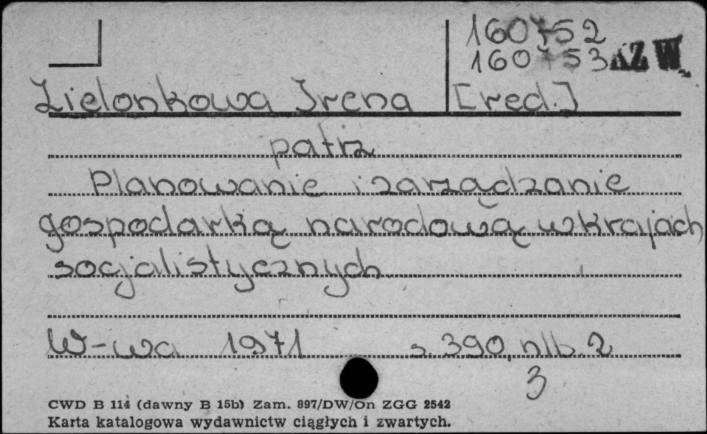 160752
160753 AZ W.
Zielonkowa Irena [red.]
patrz
Planowanie i zarządzanie
gospodarką narodową w krajach
socjalistycznych
W-wa 1971 s. 390, nlb. 2
3
CWD B 114 (dawny B 15b) Zam. 897/DW/On ZGG 2542
Karta katalogowa wydawnictw ciągłych i zwartych.